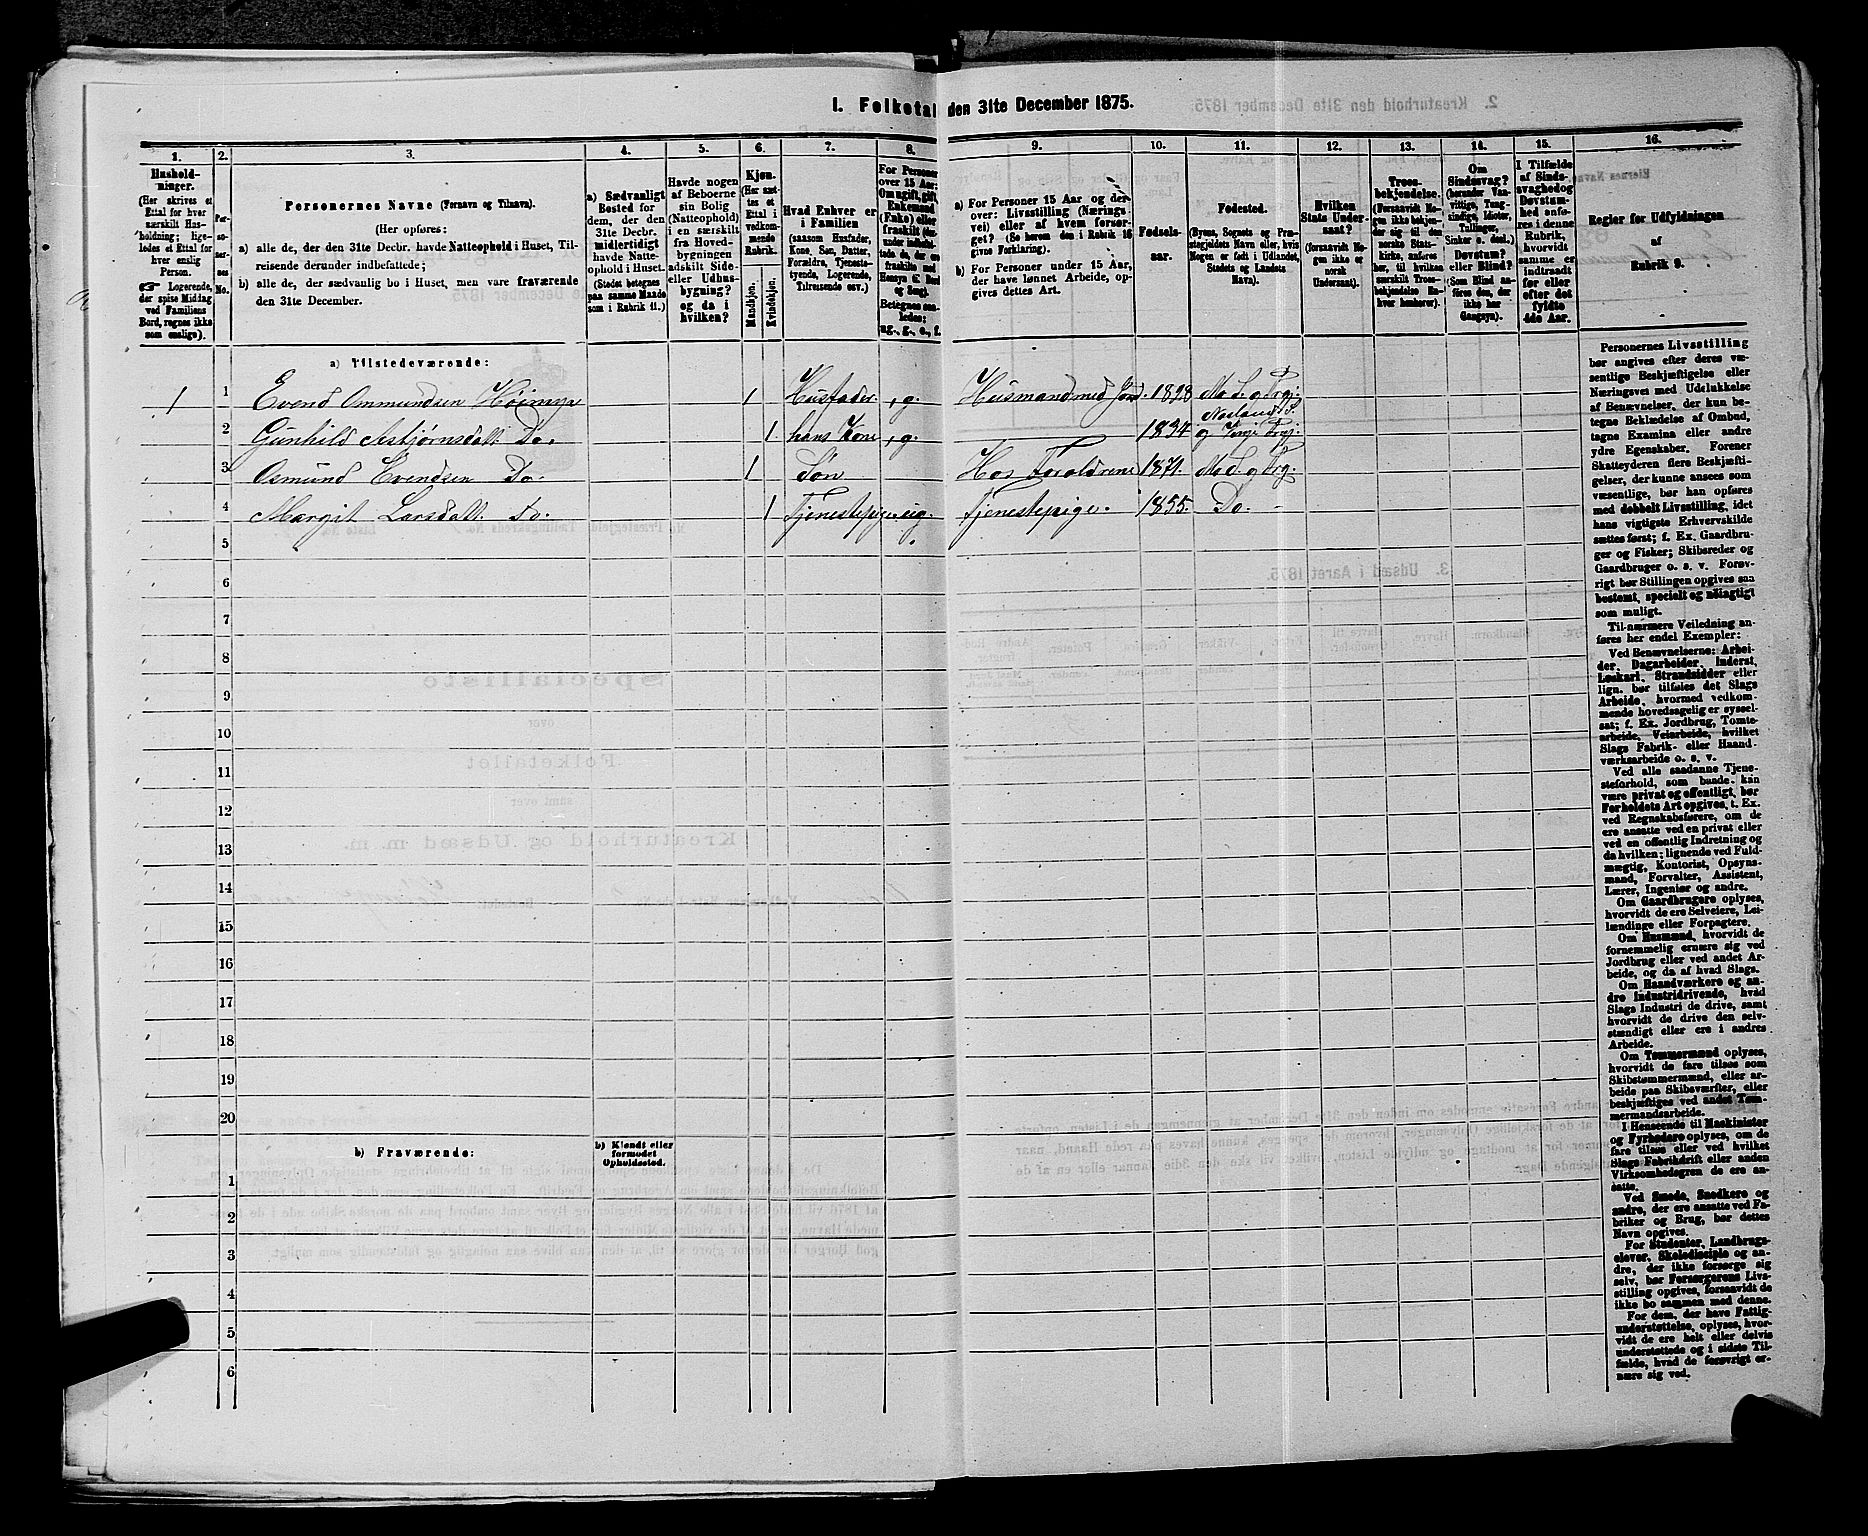 1. Folketal den 31te December 1875.
1. 2. 3. 4. 5. 6. 7. 8. 9. 10. 11. 12. 13. 14. 15. 16.
Hushold-
ninger.
(Her skrives et
Ettal for hver
særskilt Hus-
holdning; lige-
ledes et Ettal for
hver enslig
Person.
☞ Logerende,
der spise Middag
ved Familiens
Bord, regnes ikke
som enslige).
Per-
so-
ner-
nes
No.
Personernes Navne (Fornavn og Tilnavn).
(Her opføres:
a) alle de, der den 31te Decbr. havde Natteophold i Huset, Til-
reisende derunder indbefattede;
b) alle de, der sædvanlig bo i Huset, men vare fraværende
den 31te December.
a) Sædvanligt
Bosted for
dem, der den
31te Decbr.
midlertidigt
havde Natte-
ophold i Huset.
(Stedet betegnes
paa samme Maade
som i Rubrik 11.)
Havde nogen
af Beboerne
sin Bolig
(Natteophold)
i en særskilt
fra Hoved-
bygningen
adskilt Side-
eller Udhus-
bygning?
og da i
hvilken?
Kjøn.
(Her sæt-
tes et
Ettal i
vedkom-
mende
Rubrik.
Mandkjøn.
Kvindekjøn.
Hvad Enhver er
i Familien
(saasom Husfader,
Kone, Søn, Datter,
Forældre, Tjeneste-
tyende, Logerende,
Tilreisende osv.)
For Personer
over 15 Aar:
a) For Personer 15 Aar og der-
over: Livsstilling (Nærings-
vei) eller af hvem forsør-
get? (Se herom den i Rubrik 16
givne Forklaring).
b) For Personer under 15 Aar,
der have lønnet Arbeide, op-
gives dettes Art.
Fødsels-
aar.
Fødested.
(Byens, Sognets og Præ-
stegjeldets Navn eller, hvis
Nogen er født i Udlandet,
Stedets og Landets
Navn).
Hvilken
Stats Under-
saat?
(forsaavidt No-
gen ikke er
norsk
Undersaat).
Troes-
bekjendelse.
(Forsaavidt No-
gen ikke bekjen-
der sig til den
norske Stats-
kirke, anføres
her, til hvilken
særskilt Troes-
bekjendelse En-
hver henhører).
Om
Sindssvag?
(herunder Van-
vittige, Tung-
sindige, Idioter,
Tullinger,
Sinker o. desl.).
Døvstum?
eller Blind?
(Som Blind an-
føres den, der
ikke har
Gangsyn).
I Tilfælde
af Sinds-
svaghed og
Døvstum-
hed anfø-
res i denne
Rubrik,
hvorvidt
samme er
indtraadt
før eller
efter det
fyldte
4de Aar.
Regler for Udfyldningen
af
Rubrik 9.
a) Tilstedeværende:
1 1 Evend Ommundsen Høimyr 1 Husfader. , g. Husmand med Jord. 1828
2 Gunhild Asbjørnsdatt. Do. 1 hans Kone , g. 1834
3 Osmund Evendsen Do. 1 Søn Hos Forældrene 1871.
4 Margit Larsdatt. Do. 1 Tjenestepige. ug. Tjenestepige. 1855. Do.
5
6
7
8
9
10
11
12
13
14
15
16
17
18
19
20
b) Fraværende: b) Kjendt eller
formodet
Opholdssted.
1
2
3
4
5
6
Personernes Livsstilling
bør angives efter deres væ-
sentlige Beskjæftigelse eller
Næringsvei med Udelukkelse
af Benævnelser, der kun be-
tegne Beklædelse af Ombud,
tagne Examina eller andre
ydre Egenskaber. Forener
Skatteyderen flere Beskjæfti-
gelser, der kunne ansees som
væsentlige, bør han opføres
med dobbelt Livsstilling, idet
hans vigtigste Erhvervskilde
sættes først; f. Ex. Gaardbru-
ger og Fisker; Skibsreder og
Gaardbruger o. s. v. Forøv-
rigt bør Stillingen opgives saa
bestemt, specielt og nøiagtigt
som muligt.
Til nærmere Veiledning an-
føres her endel Exempler:
Ved Benævnelserne: Arbei-
der, Dagarbeider, Inderst,
Løskarl, Strandsidder eller
lign. bør tilføies det Slags
Arbeide, hvormed vedkom-
mende hovedsagelig er syssel-
sat; f. Ex. Jordbrug, Tomte-
arbeide, Veiarbeide, hvilket
Slags Fabrik- eller Haand-
værksarbeide o. s. v.
Ved alle saadanne Tjene-
steforhold, som baade kan
være privat og offentligt, bør
Forholdets Art opgives, t. Ex.
ved Regnskabsførere, om de
ere ansatte ved en privat eller
ved en offentlig Indretning og
da hvilken; lignende ved Fuld-
mægtig, Kontorist, Opsyns-
mand, Forvalter, Assistent,
Lærer, Ingeniør og andre.
Om Gaardbrugere oplyses,
hvorvidt de ere Selveiere, Lei-
lændinge eller Forpagtere.
Om Husmænd, hvorvidt de
fornemmelig ernære sig ved
Jordbrug eller ved andet Ar-
beide, og da af hvad Slags.
Om Haandværkere og an-
dre Industridrivende, hvad
Slags Industri de drive, samt
hvorvidt de drive den selv-
stændigt eller ere i andres
Arbeide.
Om Tømmermænd oplyses,
hvorvidt de fare tilsøs som
Skibstømmermænd, eller ar-
beide paa Skibsværfter, eller
beskjæftiges ved andet Tøm-
mermandsarbeide.
I Henseende til Maskinister
og Fyrbødere oplyses, om de
fare tilsøs eller ved hvilket
Slags Fabrikdrift eller anden
Virksomhedsgren de ere an-
satte.
Ved Smede, Snedkere og
andre, der ere ansatte ved Fa-
briker og Brug, bør dettes
Navn opgives.
For Studenter, Landbrugs-
elever, Skoledisciple og an-
dre, der ikke forsørge sig
selv, bør Forsørgerens Livs-
stilling opgives, forsaavidt de
ikke bo sammen med denne.
For dem, der have Fattig-
understøttelse, oplyses, hvor-
vidt de ere helt eller delvis
understøttede og i sidste Til-
fælde, hvad de forøvrigt er-
nære sig ved.